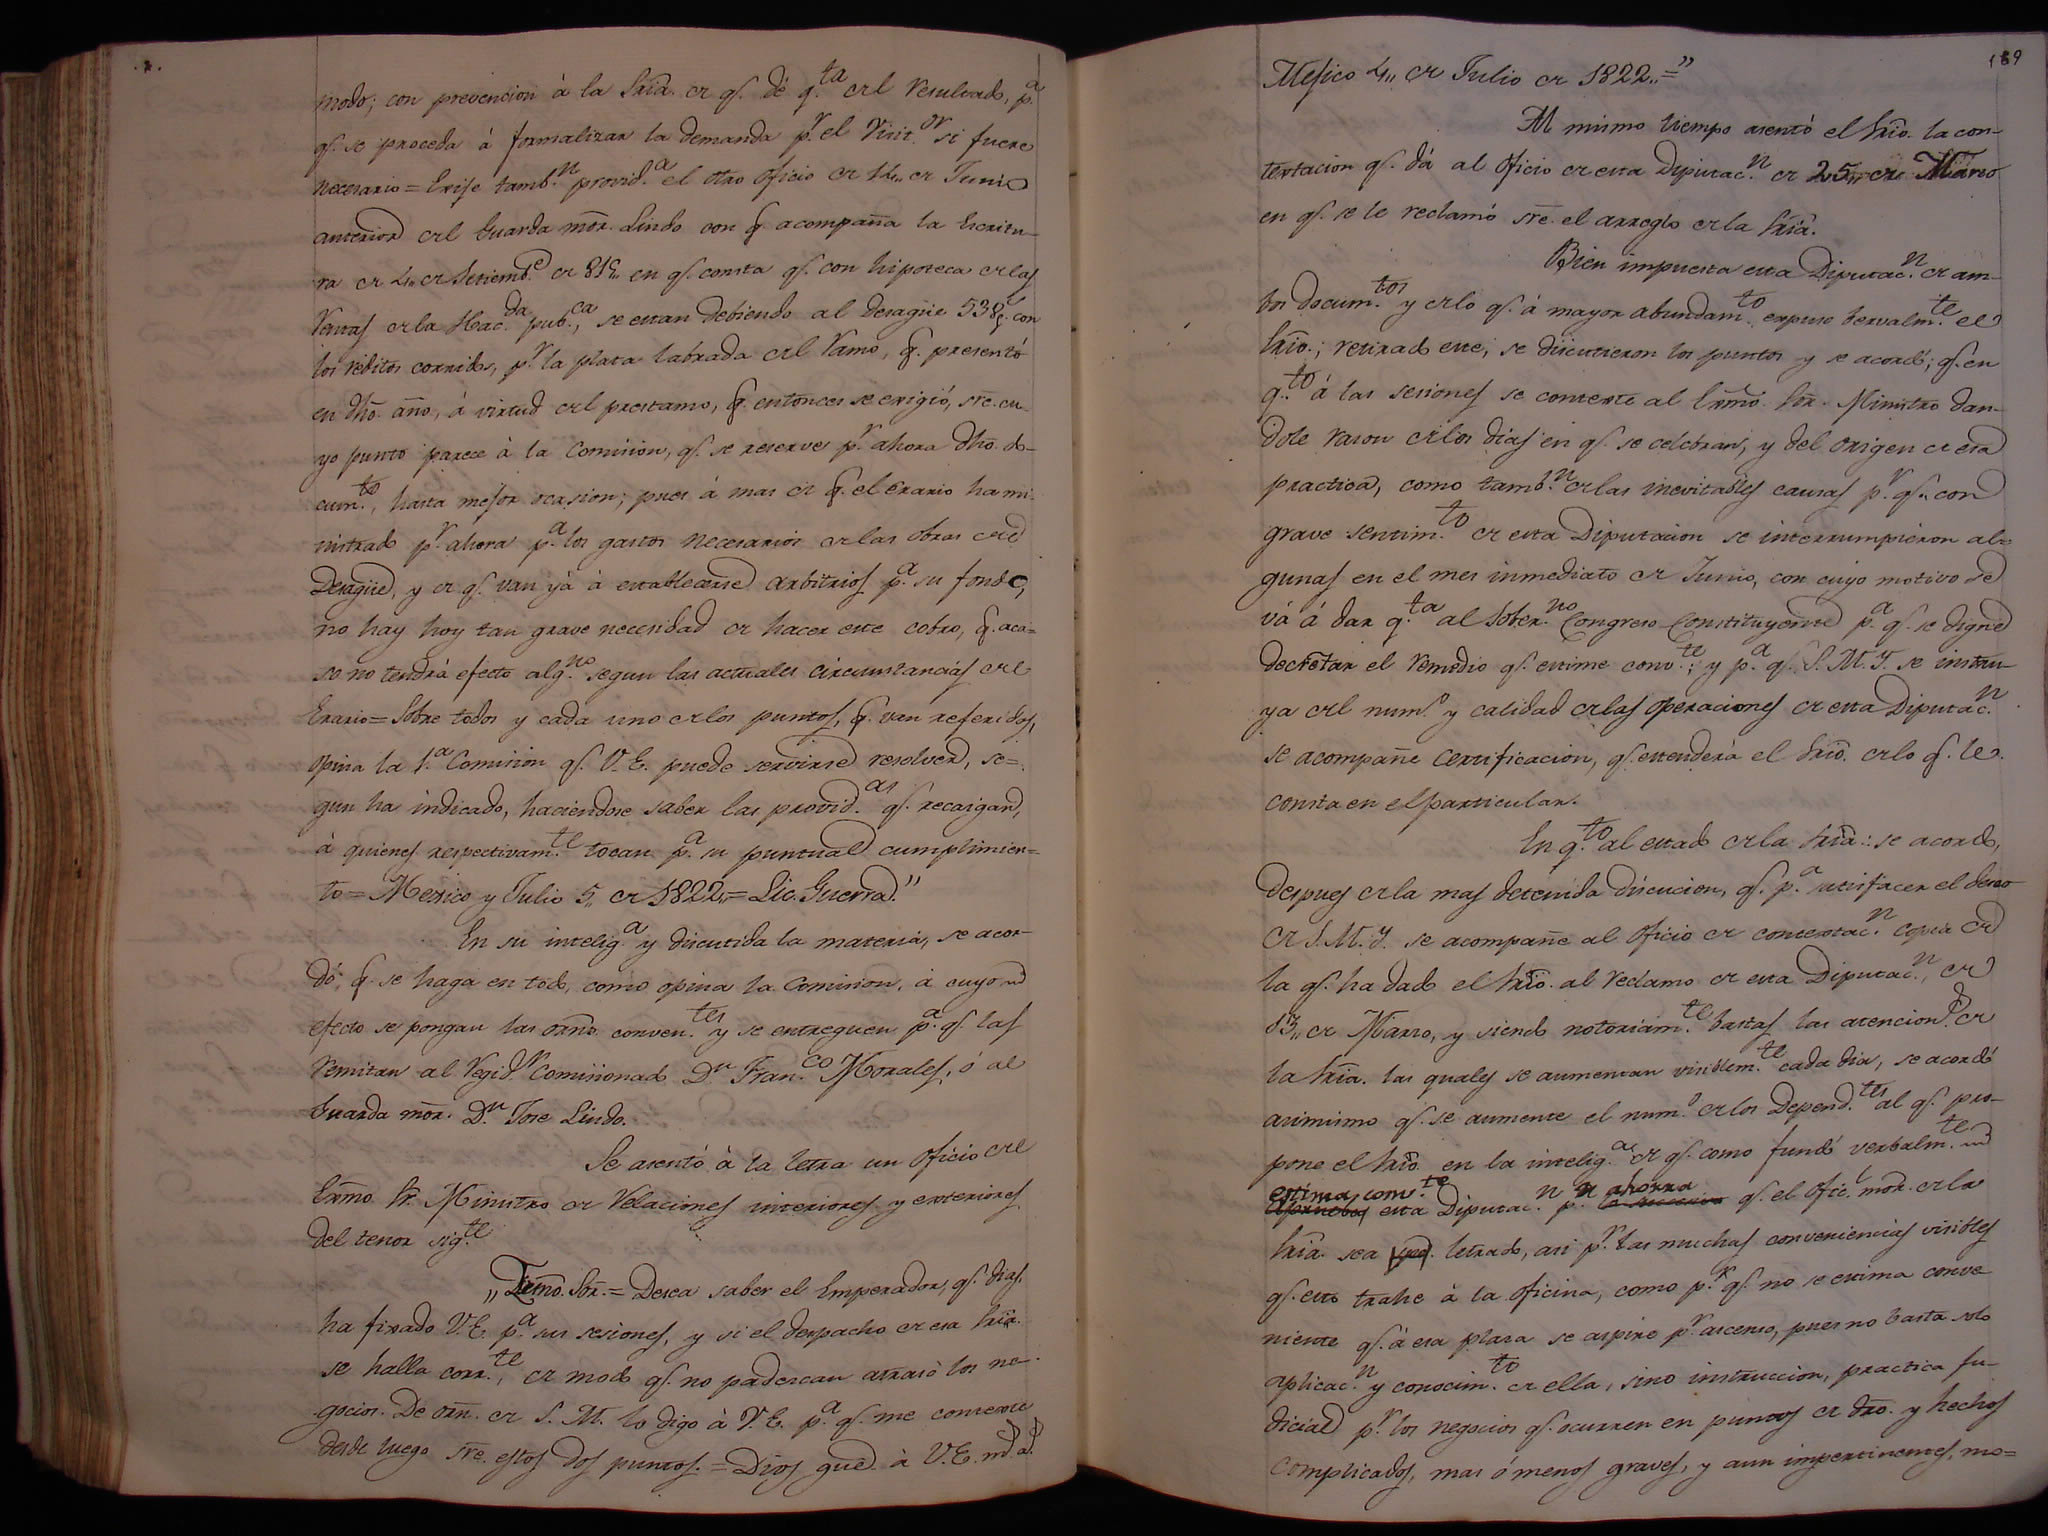 modo; con prevencion à la Sría. de q.e dé q.ta del resultado, p.a
q.e se proceda á formalizar la demanda p.r el Visit.or si fuere
necesario = Exije tamb.n provid.a el otro oficio de 12,, de Junio
anterior del Guarda mór. Lindo con q.e acompaña la Escritu-
ra de 4,, de Setiemb.e de 815,, en q.e consta q.e con hipoteca de las
rentas de la Hac.da pub.ca, se estan debiendo al Desagüe 538 con
los réditos corridos, p.r la plata labrada del ramo, q.e presentó
en dho. año, á virtud del prestamo, q.e entonces se exigió, sre. cu-
yo punto parece à la Comision, q.e se reserve p.r ahora dho. do-
cum.to, hasta mejor ocasion; pues á mas de q.e el Erario ha mi-
nistrado p.r ahora p.a los gastos necesarios de las obras del
Desagüe, y de q.e van yá à establecerse arbitrios p.a su fondo,
no hay hoy tan grave necesidad de hacer este cobro, q.e aca-
so no tendrá efecto alg.no segun las actuales circunstancias del
Erario = Sobre todos y cada uno de los puntos, q.e van referidos,
opina la 1.a Comision q.e V.E. puede servirse resolver, se-
gun ha indicado, haciendose saber las provid.as q.e recaigan,
à quienes respectivam.te tocan p.a su puntual cumplimien-
to = Mexico y Julio 5,, de 1822,, = Lic. Guerra."
En su intelig.a y discutida la materia, se acor-
dó; q.e se haga en todo, como opina la Comision, á cuyo
efecto se pongan las orns. conven.tes y se entreguen p.a q.e las
remitan al Regid.r Comisionado D.n Fran.co Morales, ó al
Guarda mór. D.n Jose Lindo.
Se asentó à la letra un oficio del
Exmo. Sr. Ministro de Relaciones interiores y exteriores
del tenor sig.te
"Exmo. Sor. = Desea saber el Emperador, q.e dias
ha fixado V.E. p.a sus sesiones, y si el despacho de esa Sría.
se halla corr.te, de modo q.e no padescan atraso los ne-
gocios. De orn. de S. M. lo digo à V.E. p.a q.e me conteste
desde luego sre. estos dos puntos. = Dios gue. à V.E. m.s a.s
189
Mejico 4,, de Julio de 1822,, ="
Al mismo tiempo asentó el Srio. la con-
testacion q.e dá al oficio de esta Diputac.n de 25,, de Marzo
en q.e se le reclamó sre. el arreglo de la Sría.
Bien impuesta esta Diputac.n de am-
bos docum.tos y de lo q.e á mayor abundam.to expuso bervalm.te el
Srio.; retirado este, se discutieron los puntos y se acordó; q.e en
q.to á las sesiones se conteste al Exmo. Sor. Ministro dan-
dole razon de los dias en q.e se celebran, y del origen de esa
practica, como tamb.n de las inevitables causas p.r q.e con
grave sentim.to de esta Diputacion se interrumpieron al-
gunas en el mes inmediato de Junio, con cuyo motivo se
vá á dar q.ta al Sober.no Congreso Constituyente p.a q.e se digne
decretar el remedio q.e estime conv.te; y p.a q.e S. M. Y. se instru-
ya del num.o y calidad de las operaciones de esta Diputac.n
se acompañe certificacion, q.e estenderá el Srio. de lo q.e le
consta en el particular.
En q.to al estado de la Sría.: se acordó,
despues de la mas detenida discucion, q.e p.a satisfacer el deseo
de S. M. Y. se acompañe al oficio de contestac.n copia de
la q.e ha dado el Srio. al reclamo de esta Diputac.n, de
13,, de Marzo, y siendo notoriam.te bastas las atencion.s de
la Sría. las quales se aumentan visiblem.te cada dia, se acordó
asimismo q.e se aumente el num.o de los Depend.tes al q.e pro-
pone el Srio. en la intelig.a de q.e como fundó verbalm.te
estima conv.te ahorra
Aprueba esta Diputac.n p.r q.e el ofic.l mór. de la
Sría. sea letrado, asi p.r las muchas conveniencias visibles
q.e esto trahe à la oficina, como p.r q.e no se estima conve-
niente q.e à esa plaza se aspire p.r ascenso, pues no basta solo
aplicac.n y conocim.to de ella, sino instruccion, practica ju-
dicial p.r los negocios q.e ocurren en puntos de dro. y hechos
complicados, mas ó menos graves, y aun impertinentes, mo-